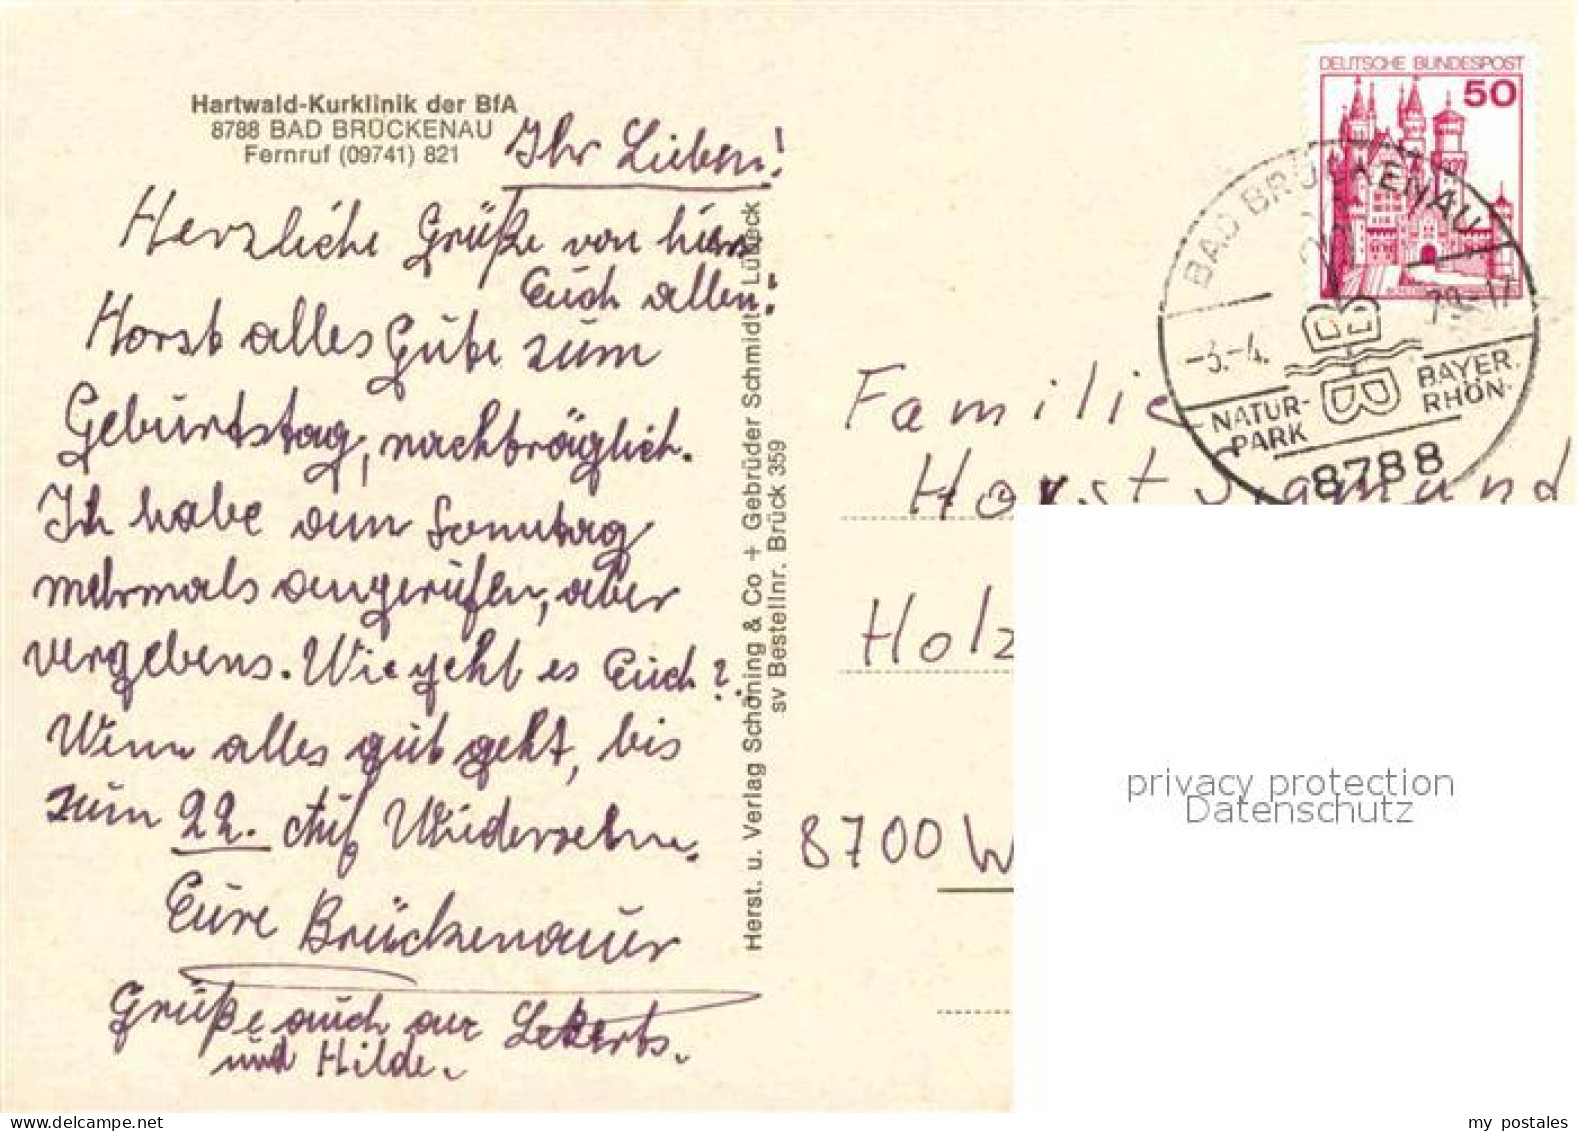 Hartwald-Kurklinik der BfA
8788 BAD BRÜCKENAU
Fernruf (09741) 821
Ihr Lieben!
Herzliche Grüße von hier
Euch allen!
Horst alles Gute zum
Geburtstag, nachträglich.
Ich habe am Sonntag
mehrmals angerufen, aber
vergebens. Wie geht es Euch?
Wenn alles gut geht, bis
zum 22. Auf Wiedersehen.
Eure Brückenauer
Grüße auch an
und Hilde.
Herst. u. Verlag Schöning & Co + Gebrüder Schmidt Lübeck
sv Bestellnr. Brück 359
DEUTSCHE BUNDESPOST
50
BAD BRÜCKENAU 1
-3.-4. 79-17
BB
NATUR-
PARK
BAYER.
RHÖN
8788
Familie
Horst
Holz
8700 W
privacy protection
Datenschutz
delcampe.net
my_postales